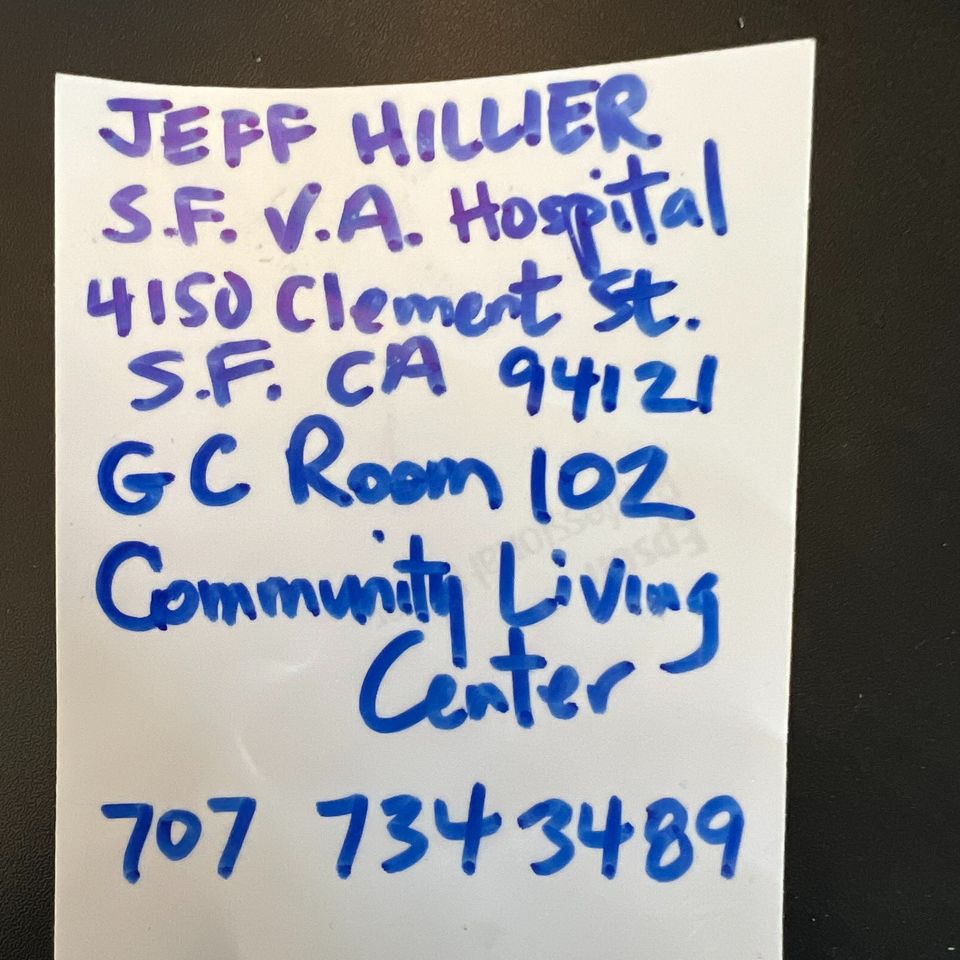 JEFF HILLIER
S.F. V.A. Hospital
4150 Clement St.
S.F. CA 94121
GC Room 102
Community Living
Center
707 734 3489